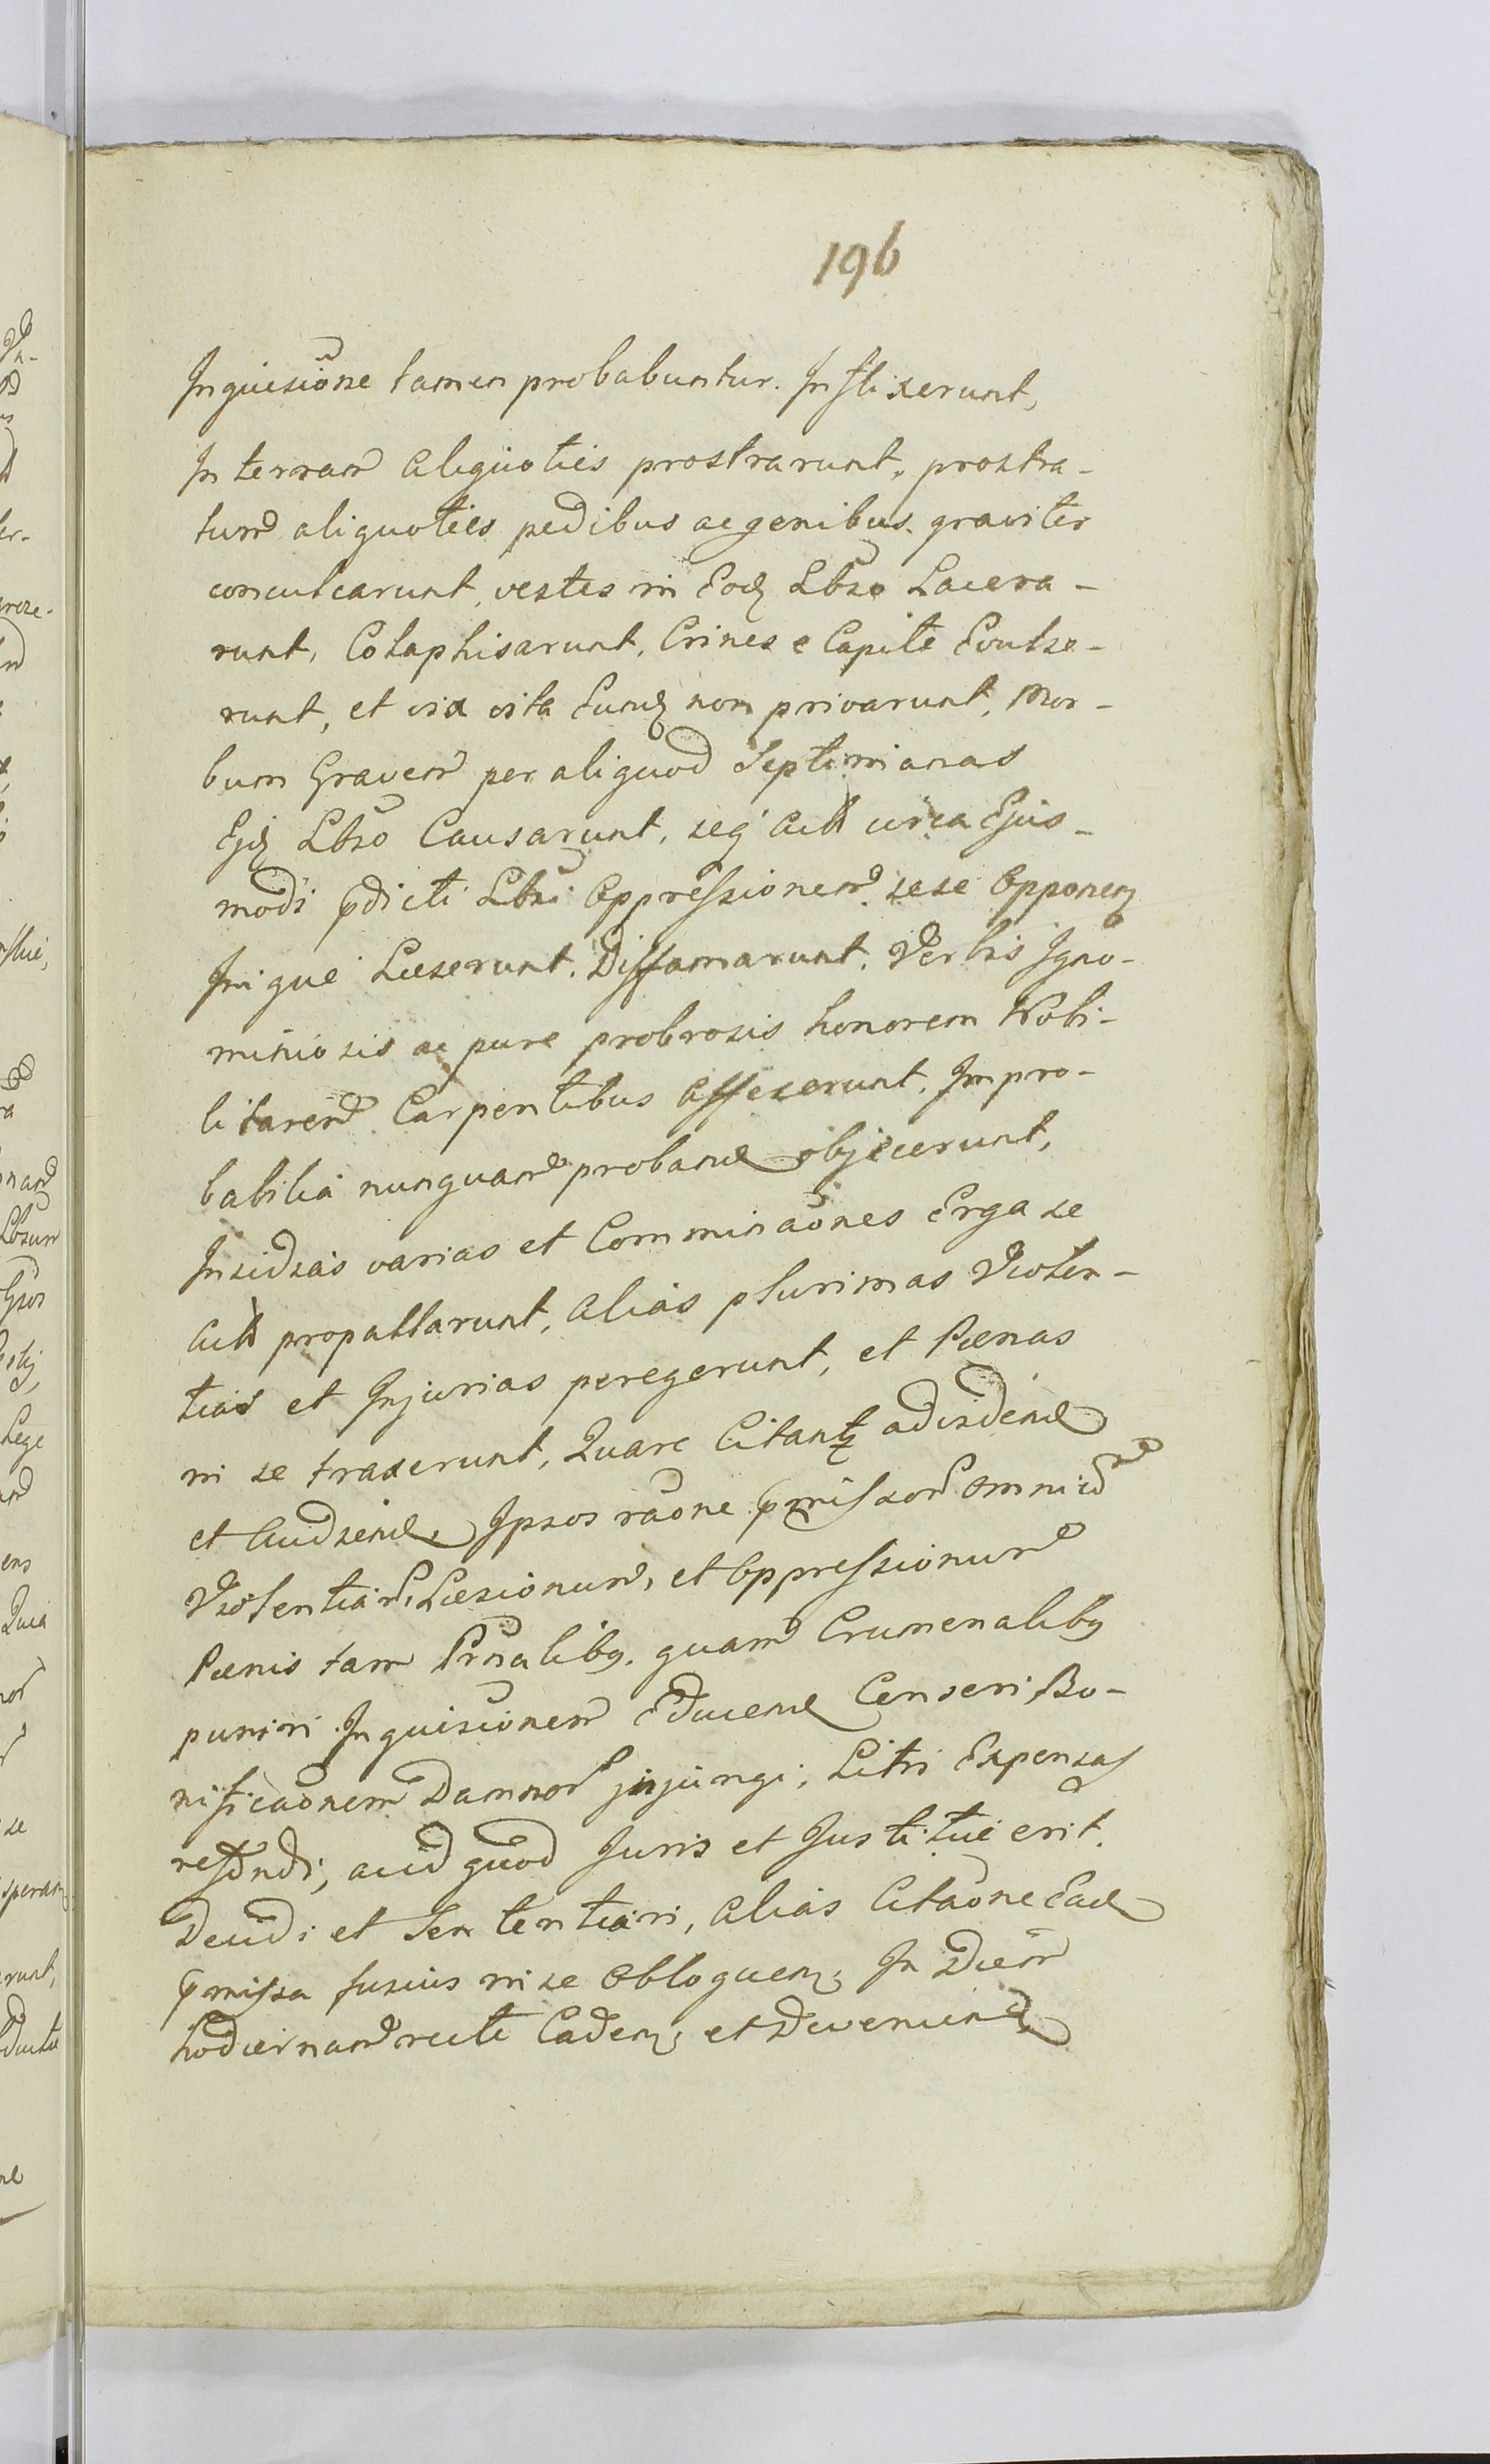 196
Inquisiõne tamen probabuntur. Inflixerunt,
In terram aliquoties prostrarunt, prostra-
tum aliquoties pedibus ac genibus graviter
conculcarunt, vestes in Eodꝫ Lbro Lacera-
runt, Colaphisarunt, Crines e Capite Evulse-
runt, et vix vita Eundꝫ non privarunt, Mor-
bum Gravem per aliquod Septimanas
Ejdꝫ Lbro Causarunt, seq̃ Actt circa Ejus-
modi p̃dicti Lbri Oppressionem sese Opponenꝫ
Inique Læserunt, Diffamarunt, Verbis Igno-
miniosis ac pure probrosis honorem Nobi-
litarem Carpentibus Affecerunt, Impro-
babilia nunquam proband objecerunt,
Insidias varias et Comminaõnes Erga se
Actt propallarunt, alias plurimas Violen-
tias et Injurias peregerunt, et Pænas
in se traxerunt, Quare Citantꝫ ad vidend
et Audiend, Ipsos raõne p̃missor omniũ
Violentiar, Læsionum, et Oppressionum
Pænis tam Prnalibꝫ quam Crumenalibꝫ
puniri Inquisiõnem Educend Censeri Bo-
nificaõnem Damnor injungi, Litri Expensas
refundi, aut quod Juris et Justitiæ erit
Decidi et Sententiari, alias Citaõne Ead
p̃missa fusius in se Obloquenꝫ In Diem
hodiernam recte Cadenꝫ et Devenienꝫ